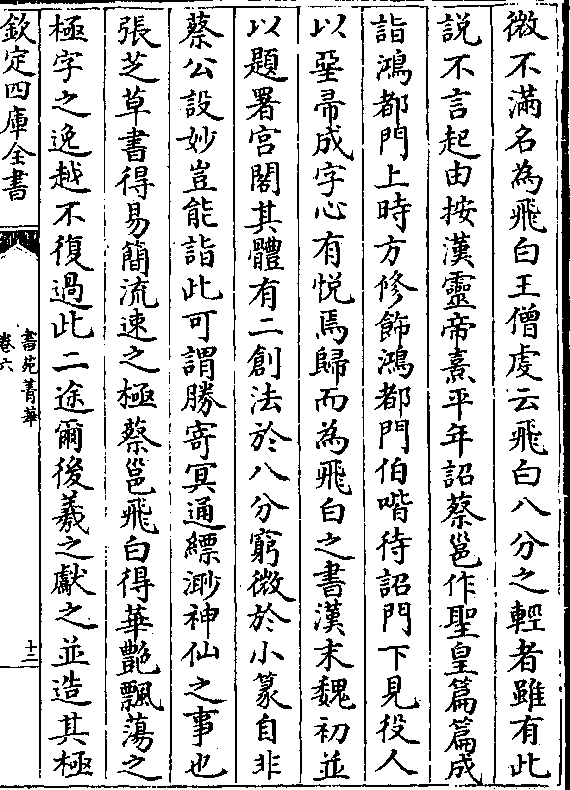 微不滿名為飛白王僧虔云飛白八分之輕者雖有此
說不言起由按漢靈帝熹平年詔蔡邕作聖皇篇篇成
詣鴻都門上時方修飾鴻都門伯喈待詔門下見役人
以堊帚成字心有悅焉歸而為飛白之書漢末魏初並
以題署宫閣其體有二創法於八分窮微於小篆自非
蔡公設妙豈能詣此可謂勝寄冥通縹渺神仙之事也
張芝草書得易簡流速之極蔡邕飛白得華艷飄蕩之
極字之逸越不復過此二途爾後羲之獻之並造其極
欽定四庫全書
書苑菁華
卷六
十二